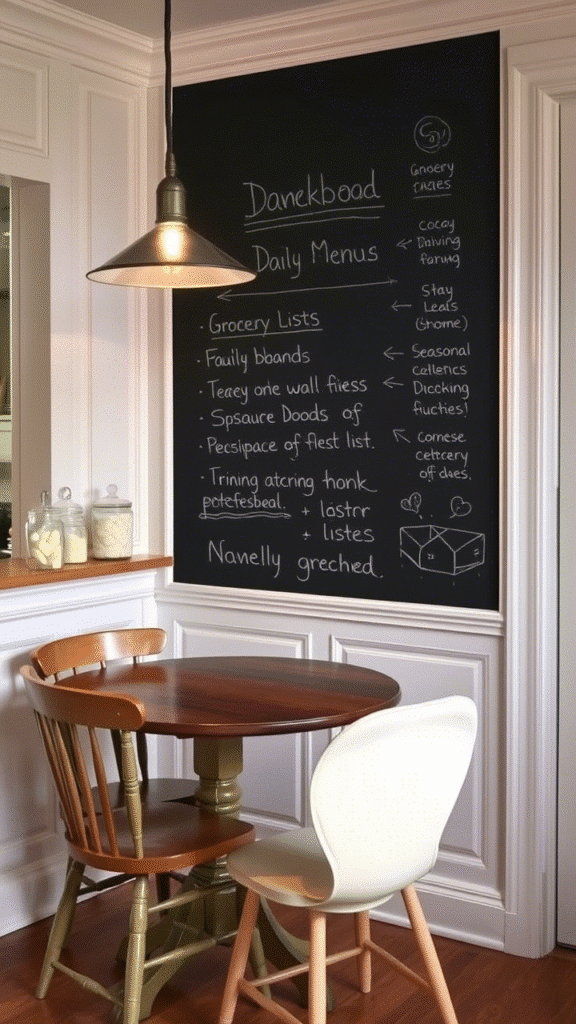 Danekboad
Daily Menus
Grocery Lists
Fauily bbands
Teaey orie wall fiess
Spsauce Doods of
Pecslpace of flest list.
Trining atcring honk
potefesbeal.
+ lastrr
+ listes
Navielly grechied.
Gnoery
Daiving
Stay
Leals
(Shome)
Seasonal
Dicoking
fiucties!
Comese
cettcery
off daes.